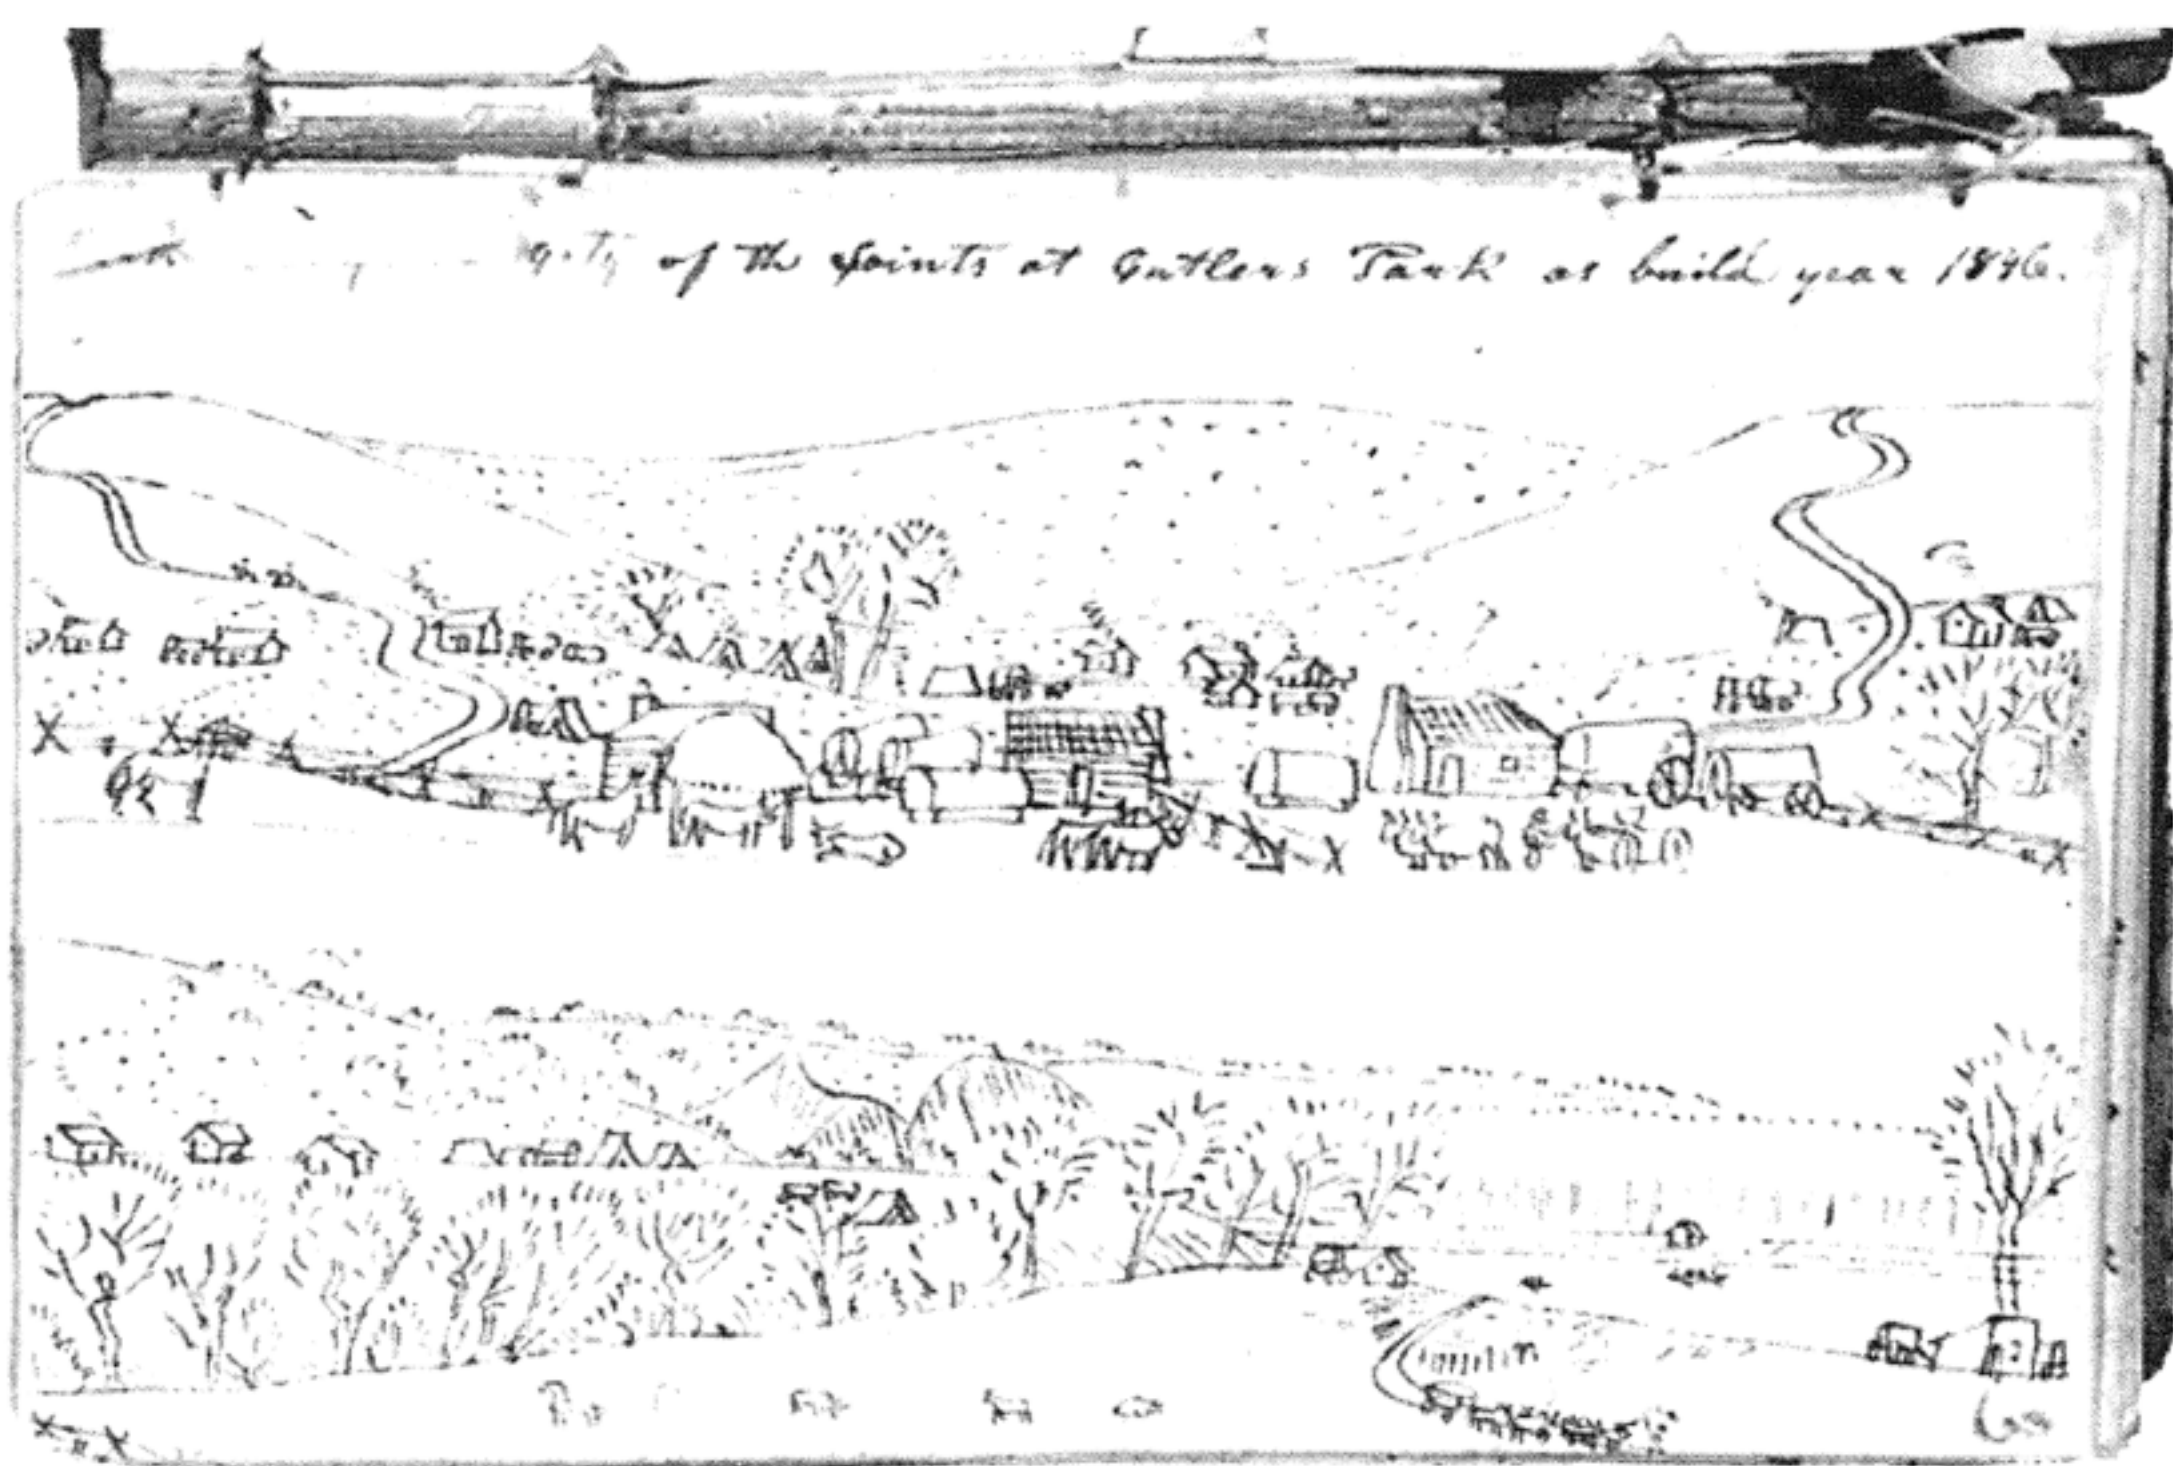 of the Saints at Cutlers Park as build year 1846.